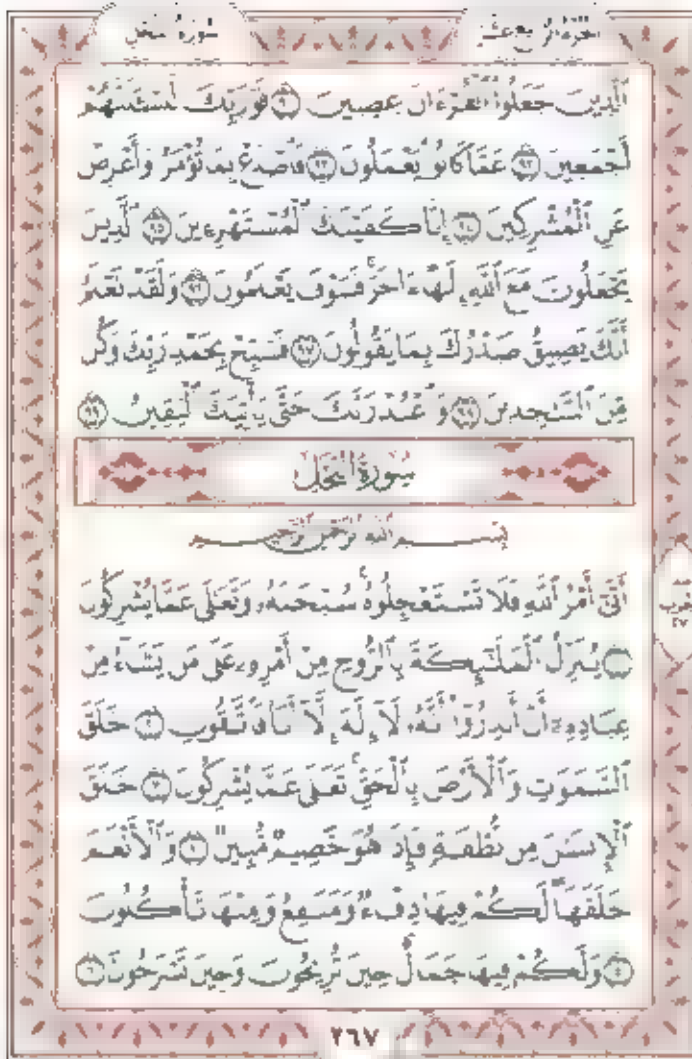 سورة النحل
الجزء الرابع عشر
ٱلَّذِينَ جَعَلُوا۟ ٱلْقُرْءَانَ عِضِينَ ٩١ فَوَرَبِّكَ لَنَسْـَٔلَنَّهُمْ
أَجْمَعِينَ ٩٢ عَمَّا كَانُوا۟ يَعْمَلُونَ ٩٣ فَٱصْدَعْ بِمَا تُؤْمَرُ وَأَعْرِضْ
عَنِ ٱلْمُشْرِكِينَ ٩٤ إِنَّا كَفَيْنَٰكَ ٱلْمُسْتَهْزِءِينَ ٩٥ ٱلَّذِينَ
يَجْعَلُونَ مَعَ ٱللَّهِ إِلَٰهًا ءَاخَرَ ۚ فَسَوْفَ يَعْلَمُونَ ٩٦ وَلَقَدْ نَعْلَمُ
أَنَّكَ يَضِيقُ صَدْرُكَ بِمَا يَقُولُونَ ٩٧ فَسَبِّحْ بِحَمْدِ رَبِّكَ وَكُن
مِّنَ ٱلسَّٰجِدِينَ ٩٨ وَٱعْبُدْ رَبَّكَ حَتَّىٰ يَأْتِيَكَ ٱلْيَقِينُ ٩٩
سُورَةُ النَّحْلِ
بِسْمِ ٱللَّهِ ٱلرَّحْمَٰنِ ٱلرَّحِيمِ
أَتَىٰٓ أَمْرُ ٱللَّهِ فَلَا تَسْتَعْجِلُوهُ ۚ سُبْحَٰنَهُۥ وَتَعَٰلَىٰ عَمَّا يُشْرِكُونَ
١ يُنَزِّلُ ٱلْمَلَٰٓئِكَةَ بِٱلرُّوحِ مِنْ أَمْرِهِۦ عَلَىٰ مَن يَشَآءُ مِنْ
عِبَادِهِۦٓ أَنْ أَنذِرُوٓا۟ أَنَّهُۥ لَآ إِلَٰهَ إِلَّآ أَنَا۠ فَٱتَّقُونِ ٢ خَلَقَ
ٱلسَّمَٰوَٰتِ وَٱلْأَرْضَ بِٱلْحَقِّ ۚ تَعَٰلَىٰ عَمَّا يُشْرِكُونَ ٣ خَلَقَ
ٱلْإِنسَٰنَ مِن نُّطْفَةٍ فَإِذَا هُوَ خَصِيمٌ مُّبِينٌ ٤ وَٱلْأَنْعَٰمَ
خَلَقَهَا ۗ لَكُمْ فِيهَا دِفْءٌ وَمَنَٰفِعُ وَمِنْهَا تَأْكُلُونَ
٥ وَلَكُمْ فِيهَا جَمَالٌ حِينَ تُرِيحُونَ وَحِينَ تَسْرَحُونَ ٦
٢٦٧